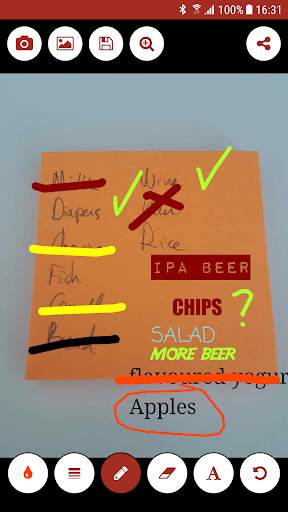 100% 16:31
Milk
Wine
Diapers
Rice
Fish
IPA BEER
CHIPS ?
Bread
SALAD
MORE BEER
flavoured yogur
Apples
A